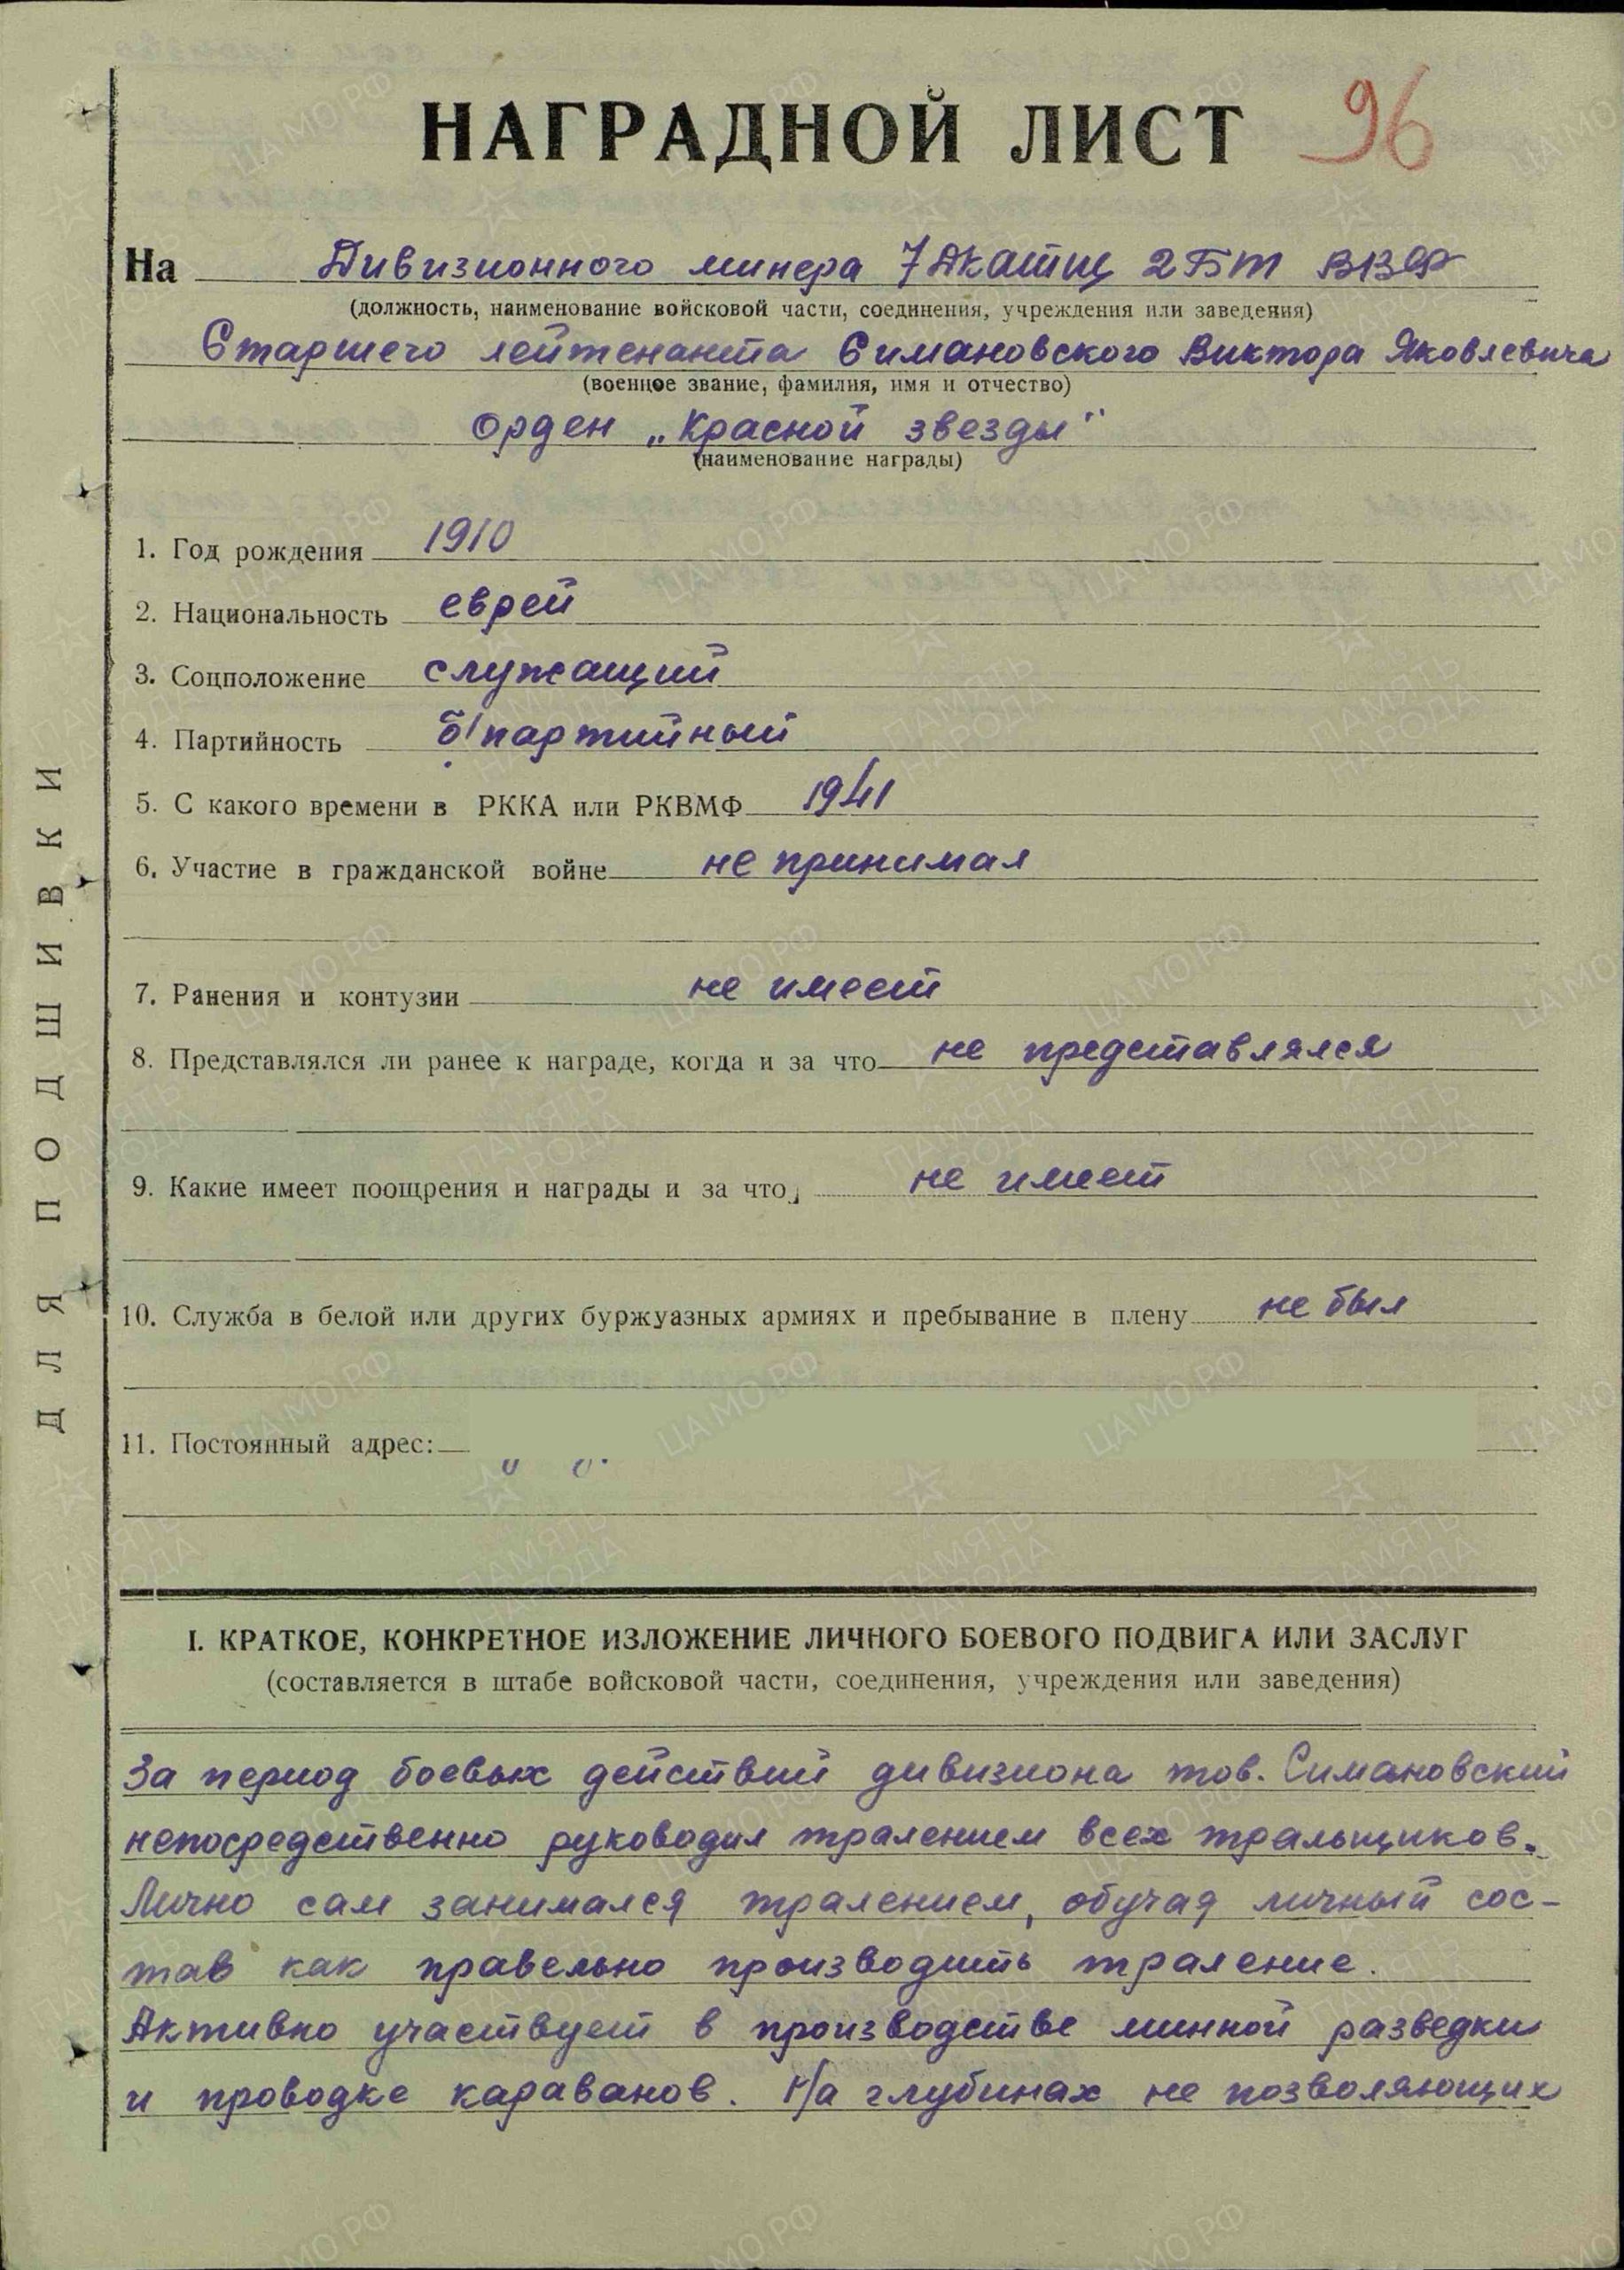 НАГРАДНОЙ ЛИСТ 96
На Дивизионного минера 7 АКАТЩ 2 БТ ВВФ
(должность, наименование войсковой части, соединения, учреждения или заведения)
Старшего лейтенанта Симановского Виктора Яковлевича
(военное звание, фамилия, имя и отчество)
орден „Красной звезды"
(наименование награды)
1. Год рождения 1910
2. Национальность еврей
3. Соцположение служащий
4. Партийность б/партийный
5. С какого времени в РККА или РКВМФ 1941
6. Участие в гражданской войне не принимал
7. Ранения и контузии не имеет
8. Представлялся ли ранее к награде, когда и за что не представлялся
9. Какие имеет поощрения и награды и за что, не имеет
10. Служба в белой или других буржуазных армиях и пребывание в плену не был
11. Постоянный адрес:
ДЛЯ ПОДШИВКИ
I. КРАТКОЕ, КОНКРЕТНОЕ ИЗЛОЖЕНИЕ ЛИЧНОГО БОЕВОГО ПОДВИГА ИЛИ ЗАСЛУГ
(составляется в штабе войсковой части, соединения, учреждения или заведения)
За период боевых действий дивизиона тов. Симановский
непосредственно руководил тралением всех тральщиков.
Лично сам занимался тралением, обучая личный сос-
тав как правельно производить траление.
Активно участвует в производстве минной разведки
и проводке караванов. На глубинах не позволяющих
ЦАМО РФ
ПАМЯТЬ НАРОДА